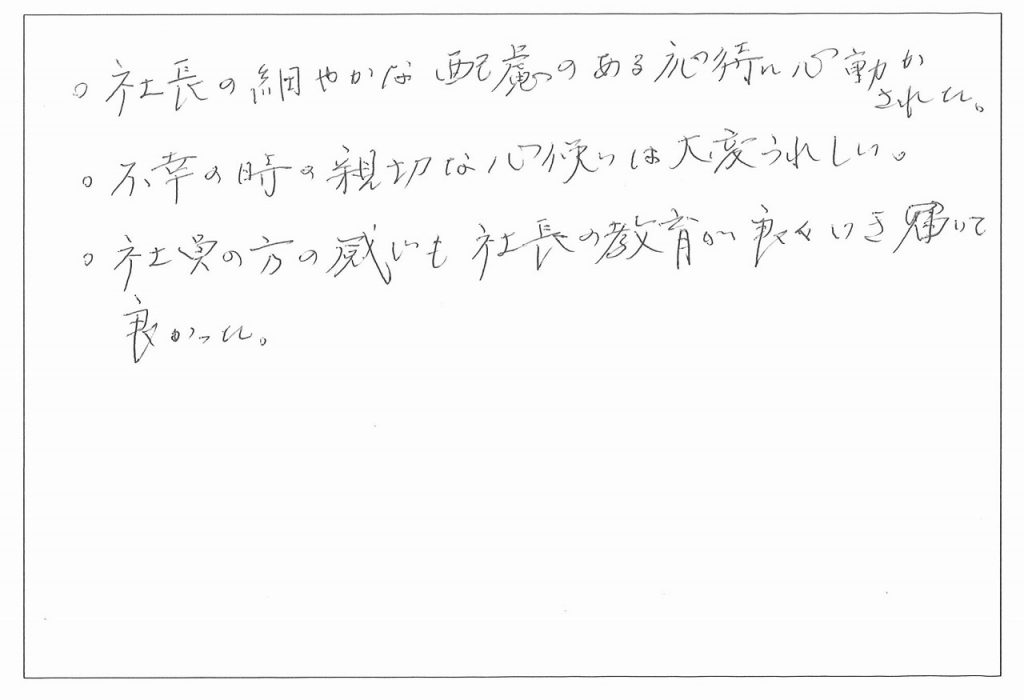 。社長の細やかな配慮のある応待に心動か
された。
。不幸の時の親切な心使いは大変うれしい。
。社員の方の感じも社長の教育が良くいき届いて
良かった。